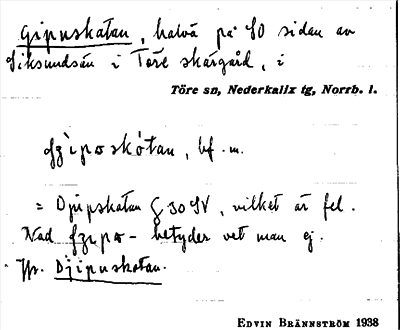 Gipnskatan, halvö på SO sidan av
Siksundsön i Töre skärgård, i
Töre sn, Nederkalix tg, Norrb. l.
bf. m.
= Djipskatan § 30 SV, vilket är fel.
Vad betyder vet man ej.
Jfr. Djipnskatan.
EDVIN BRÄNNSTRÖM 1938